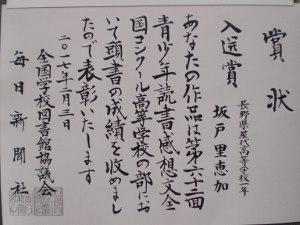 賞状
入選賞
長野県屋代高等学校一年
坂戸里恵加
あなたの作品は第六十二回
青少年読書感想文全
国コンクール高等学校の部にお
いて頭書の成績を収めまし
たので表彰いたします
二〇一七年二月三日
全国学校図書館協議会
毎日新聞社